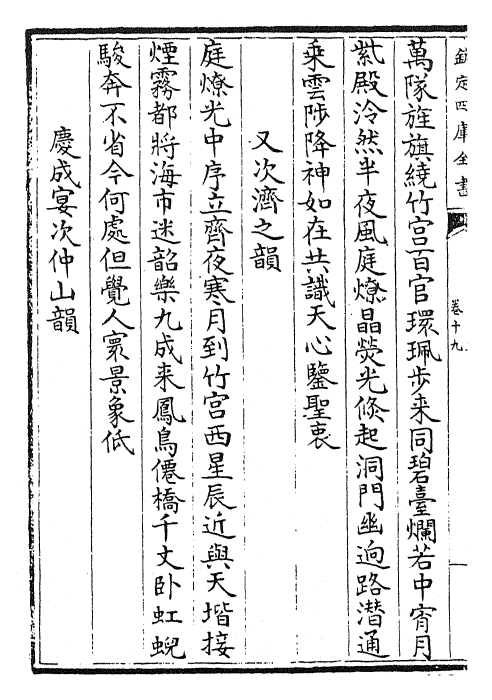 欽定四庫全書
卷十九
萬隊旌旗繞竹宫百官環珮步来同碧臺爛若中宵月
紫殿泠然半夜風庭燎晶熒光倐起洞門幽逈路潛通
乘雲陟降神如在共識天心鑒聖衷
又次濟之韻
庭燎光中序立齊夜寒月到竹宫西星辰近與天堦接
煙霧都將海市迷韶樂九成来鳳鳥僊橋千丈卧虹蜺
駿奔不省今何處但覺人寰景象低
慶成宴次仲山韻